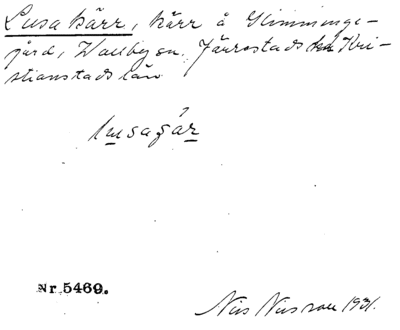 Lusa kärr, kärr å Glimminge-
gård, Wallby sn. Järrestads hd Kri-
stianstads län
lusaɡár
Nr. 5469.
Nils Nilsson 1931.